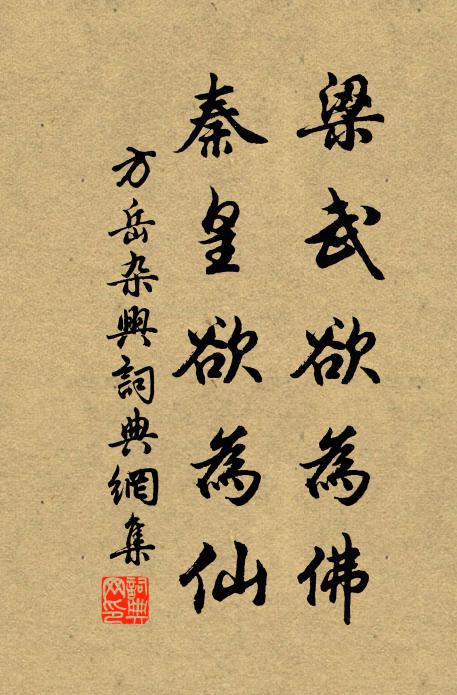 梁武欲為佛
秦皇欲為仙
方岳杂興詞典網集
詞典网印